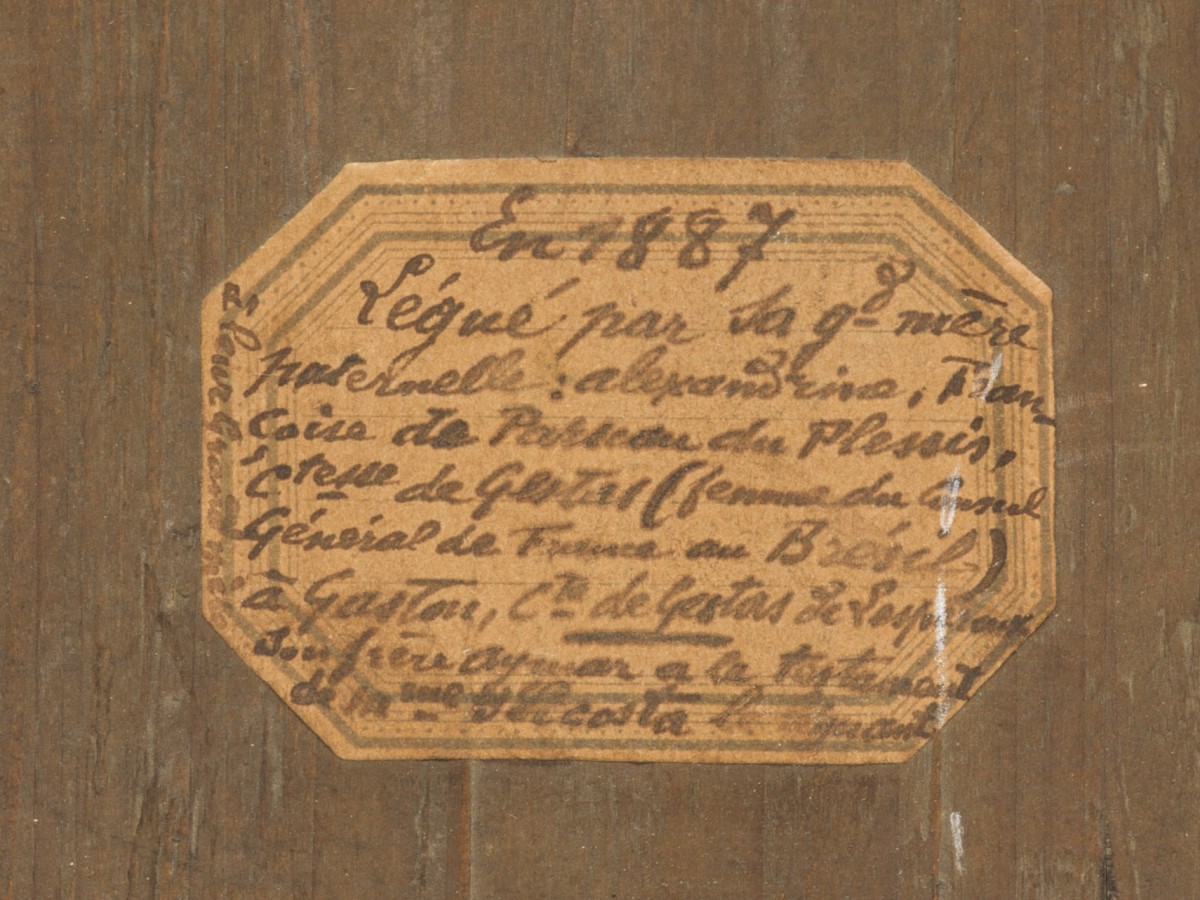 En 1887
Légué par sa gde mère
paternelle : alexandrine, Fran-
çoise de Parseau du Plessis,
Ctesse de Gestas (femme du Consul
Général de France au Brésil)
à Gaston, Cte de Gestas de Lesperoux
Son frère Aymar a le testament
de la costa
à leur Grand mère